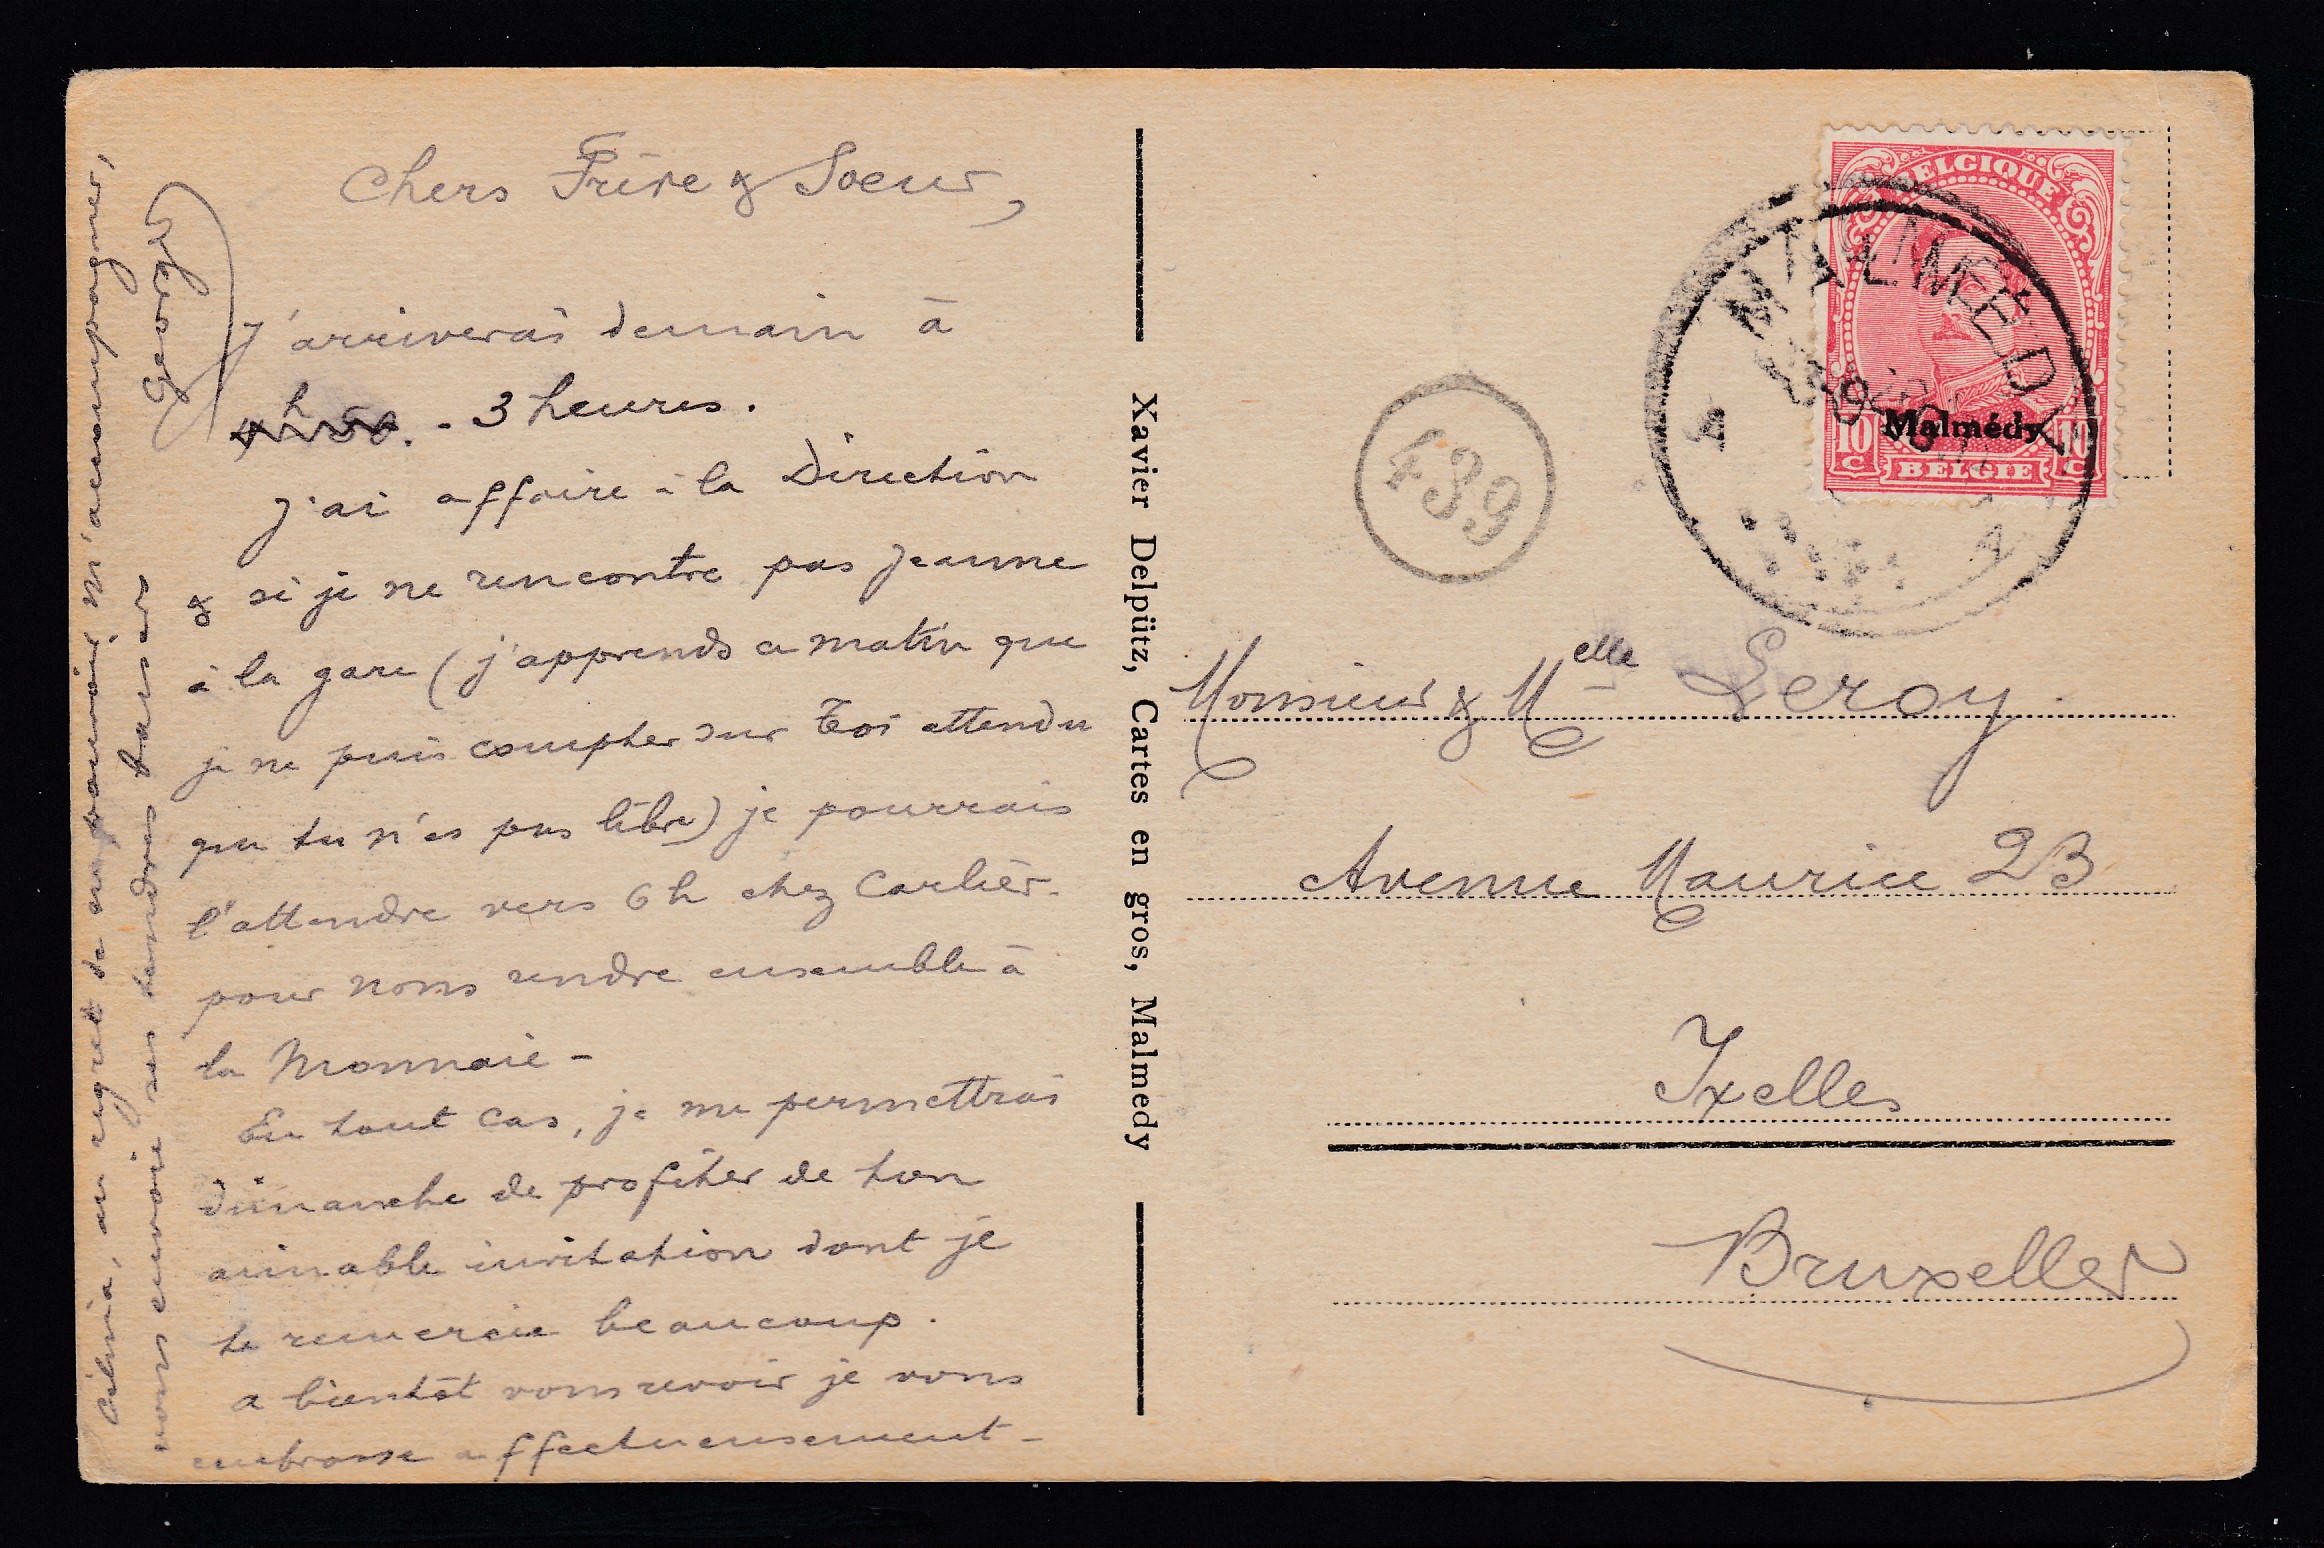 Chers Frère & Soeur,
J'arriverai demain à
4h50. - 3 heures.
J'ai affaire à la Direction
& si je ne rencontre pas Jeanne
à la gare (j'apprends ce matin que
je ne puis compter sur Toi attendu
que tu n'es pas libre) je pourrais
l'attendre vers 6h chez Carlier.
pour nous rendre ensemble à
la Monnaie -
En tout cas, je me permettrai
dimanche de profiter de ton
aimable invitation dont je
te remercie beaucoup.
a bientôt vous revoir je vous
embrasse affectueusement -
au regret de ne pouvoir m'accompagner,
vous envoie ses tendres baisers
Georges
Xavier Delpütz, Cartes en gros, Malmedy
BELGIQUE
Malmédy
10 C 10 C
BELGIE
MALMÉDY
439
Monsieur & Melle Leroy.
Avenue Maurice 23
Ixelles
Bruxelles